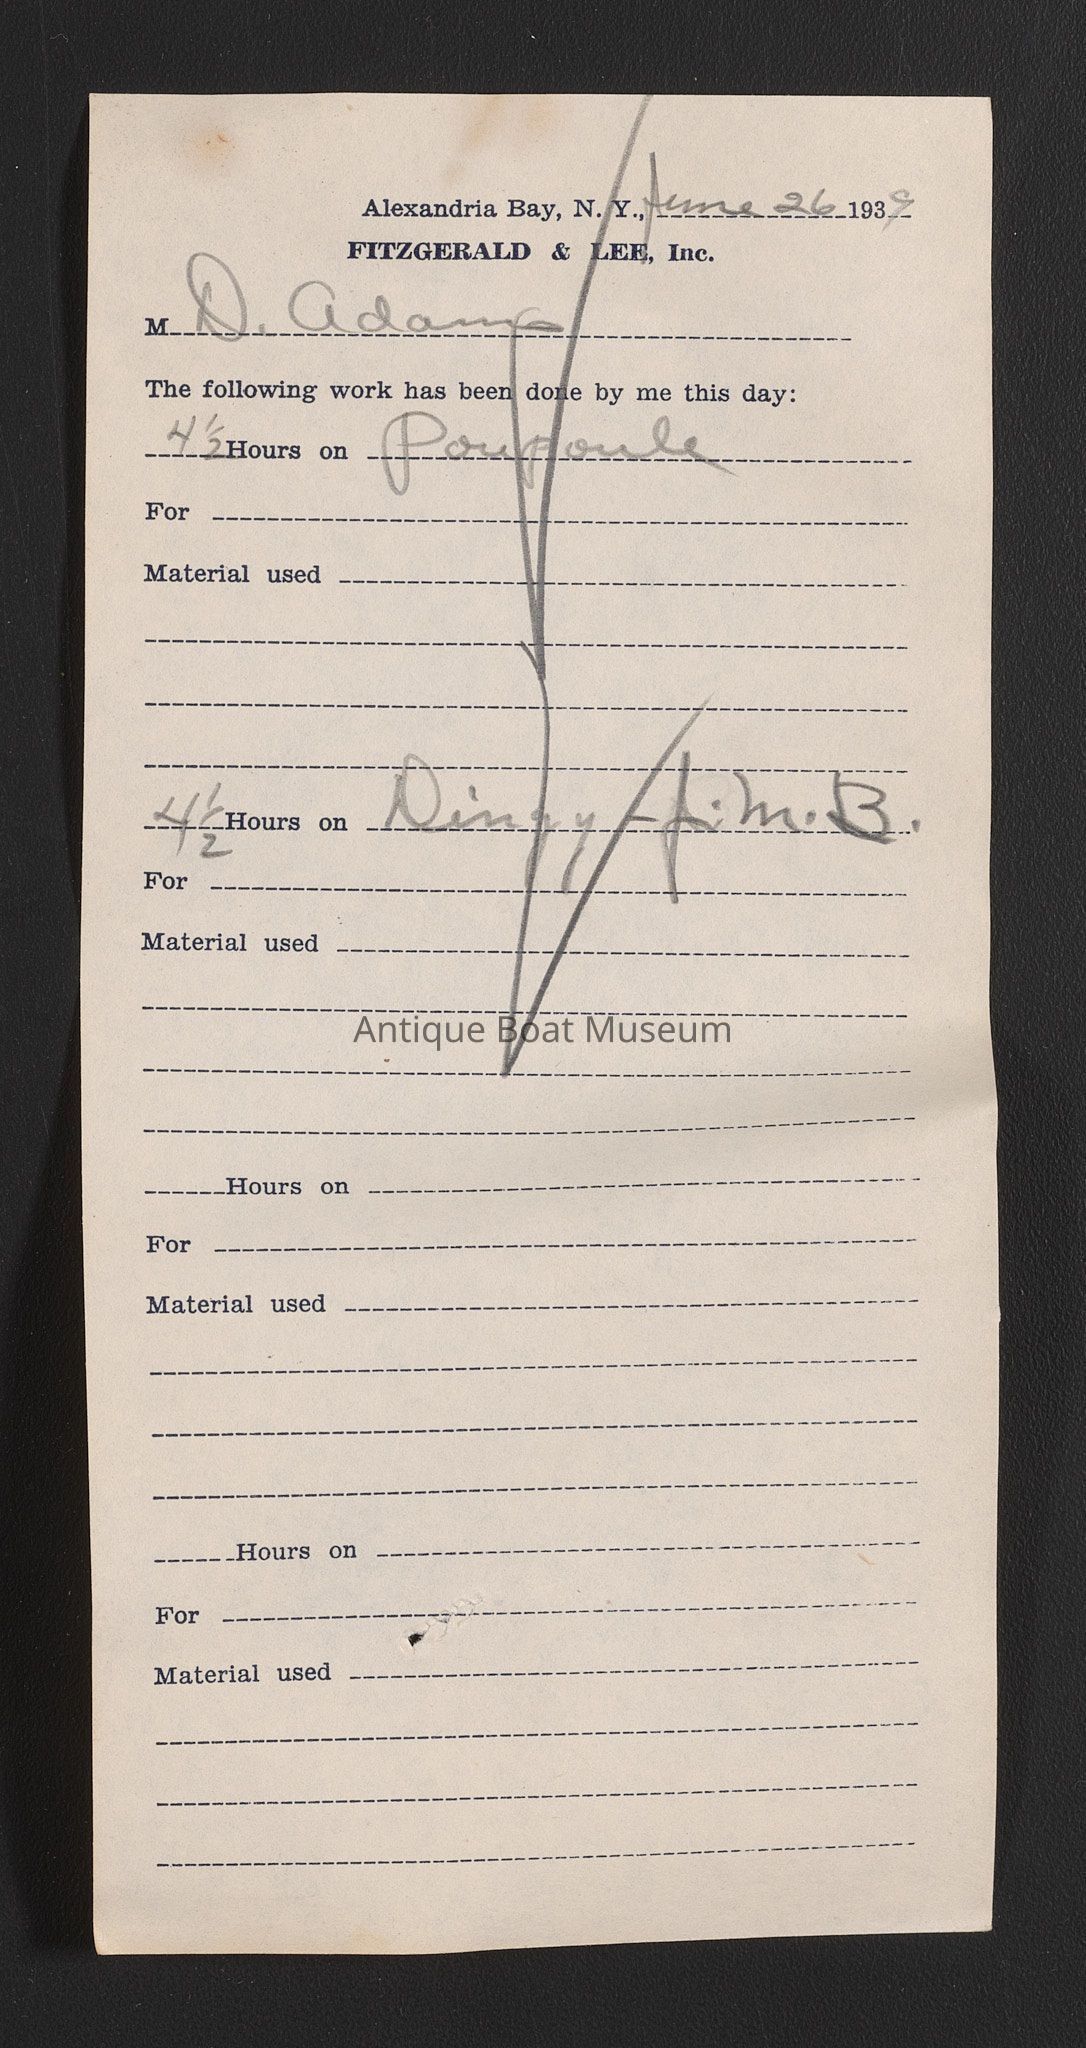 Alexandria Bay, N. Y., June 26 1939
FITZGERALD & LEE, Inc.
M D. Adams
The following work has been done by me this day:
4 1/2 Hours on Poupoule
For
Material used
4 1/2 Hours on Dingy - J. M. B.
For
Material used
Antique Boat Museum
Hours on
For
Material used
Hours on
For
Material used